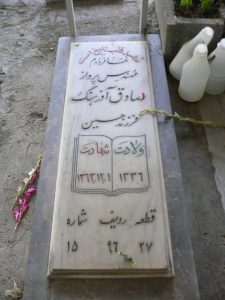 مهندس پرواز
صادق آذرهنگ
فرزند حسین
ولادت شهادت
۱۳۳۶ ۱۳۶۳،۱۲،۱
قطعه ردیف شماره
۱۵ ۹۶ ۲۷